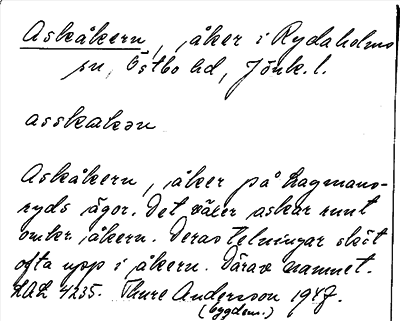 Askåkern, åker i Rydaholms
sn, Östbo hd, Jönk. l.
asskakən
Askåkern, åker på Lagmans-
ryds ägor. Det växer askar runt
omkr. åkern. Deras telningar sköt
ofta upp i åkern. Därav namnet.
LAL 4235. Thure Andersson 1947.
(bygdem.)